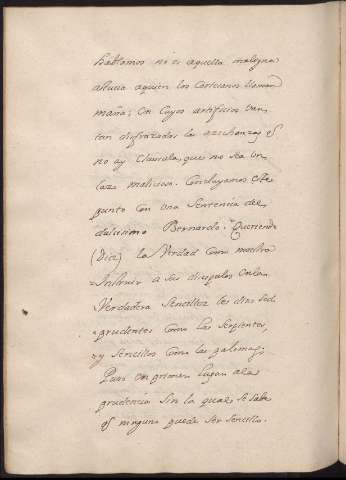 hablamos no es aquella maligna
astucia aquien los Cortesanos llaman
maña; en cuyos artificios van
tan disfrazadas las asechanzas q̃
no ay Clausula, que no sea un
lazo malicioso. Concluyamos este
punto con una Sentencia del
dulcisimo Bernardo. Queriendo
(dice) la Verdad como maestro
instruir a sus discipulos en la
Verdadera Sencillez les dixo Sed
prudentes como las Serpientes,
y Sencillos como las palomas;
Puso en primer lugar a la
prudencia sin la qual se sabe
q̃ ninguno puede ser sencillo.